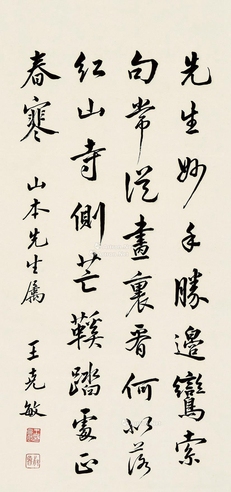 先生妙手勝邊鸞索
句常從畫裏看何似落
紅山寺側芒鞵踏處正
春寒
山本先生属
王克敏